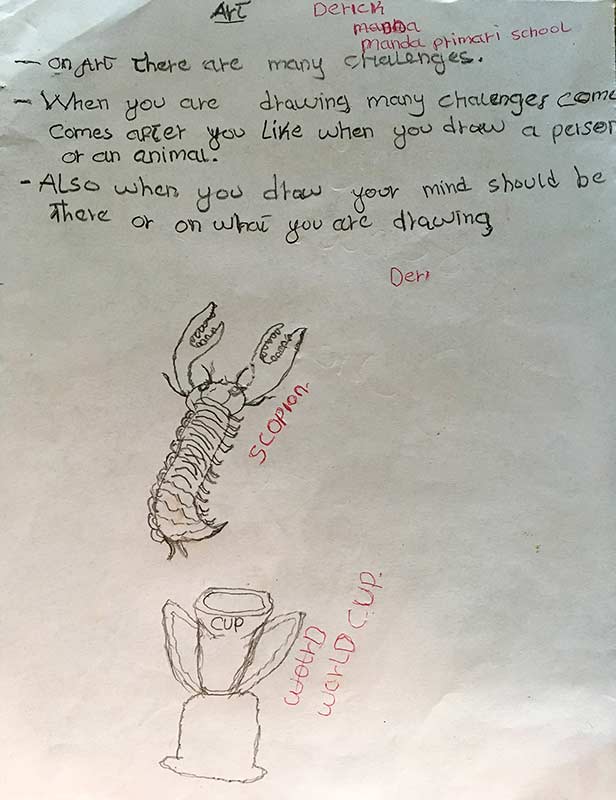 Art
Derick
manda
manda primari school
- on Art There are many challenges.
- When you are drawing many chalenges come
comes after you Like when you draw a person
or an animal.
- Also when you draw your mind should be
There or on what you are drawing
Deri
scopion.
CUP
World
World CUP.